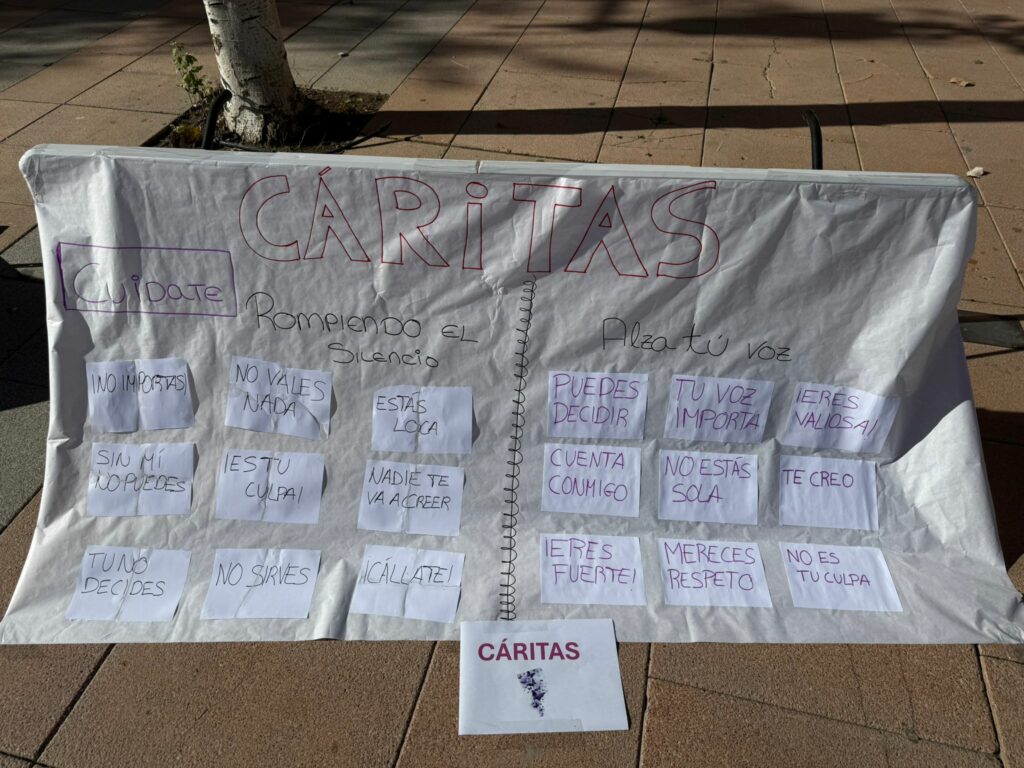 CÁRiTAS
CuiDATE
ROMPIENDO EL
SILENCIO
¡NO IMPORTAS!
NO VALES
NADA
ESTÁS
LOCA
SIN MÍ
NO PUEDES
¡ES TU
CULPA!
NADIE TE
VA A CREER
TU NO
DECIDES
NO SIRVES
¡CÁLLATE!
Alza tú voz
PUEDES
DECIDIR
TU VOZ
IMPORTA
¡ERES
VALIOSA!
CUENTA
CONMIGO
NO ESTÁS
SOLA
TE CREO
¡ERES
FUERTE!
MERECES
RESPETO
NO ES
TU CULPA
CÁRITAS